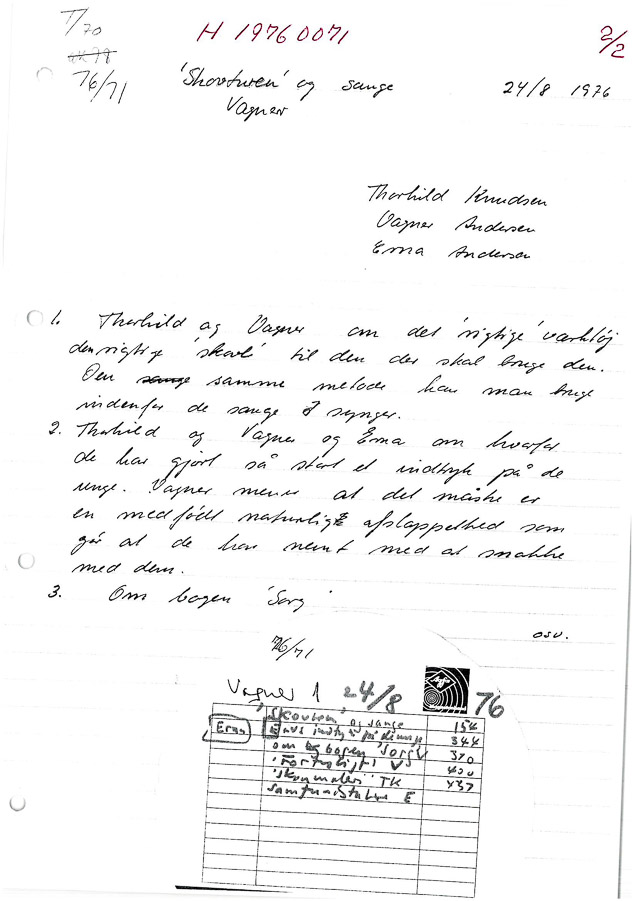 T/70
H 19760071
2/2
76/71
'Skovturen' og sange
24/8 1976
Vagner
Thorhild Knudsen
Vagner Andersen
Erna Andersen
1. Thorhild og Vagner om det 'rigtige' værktøj
den rigtige 'skovl' til den der skal bruge den.
Den samme metode kan man bruge
indenfor de sange I synger.
2. Thorhild og Vagner og Erna om hvorfor
de har gjort så stort et indtryk på de
unge. Vagner mener at det måske er
en medfødt naturlig afslappethed som
gør at de har nemt med at snakke
med dem.
3. Om bogen 'Sorg'
osv.
76/71
Vagner 1 24/8 76
'Skovturen' og sange 154
Erna
344
om bogen 'Sorg' 370
400
TK 437
E